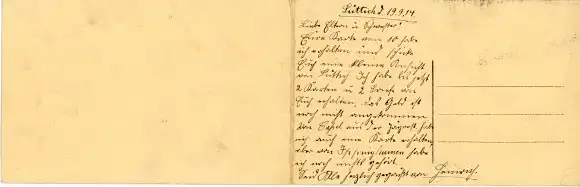 Lüttich d. 19.9.14.
Liebe Eltern u. Schwester!
Eure Karte vom 10. habe
ich erhalten und schicke
Euch eine kleine Ansicht
von Lüttich. Ich habe bis jetzt
2 Karten u. 2 Briefe von
Euch erhalten. Das Geld ist
noch nicht angekommen.
Von aus der habe
ich auch eine Karte erhalten
aber von habe
ich noch nichts gehört.
Seid Alle herzlich gegrüßt von Heinrich.